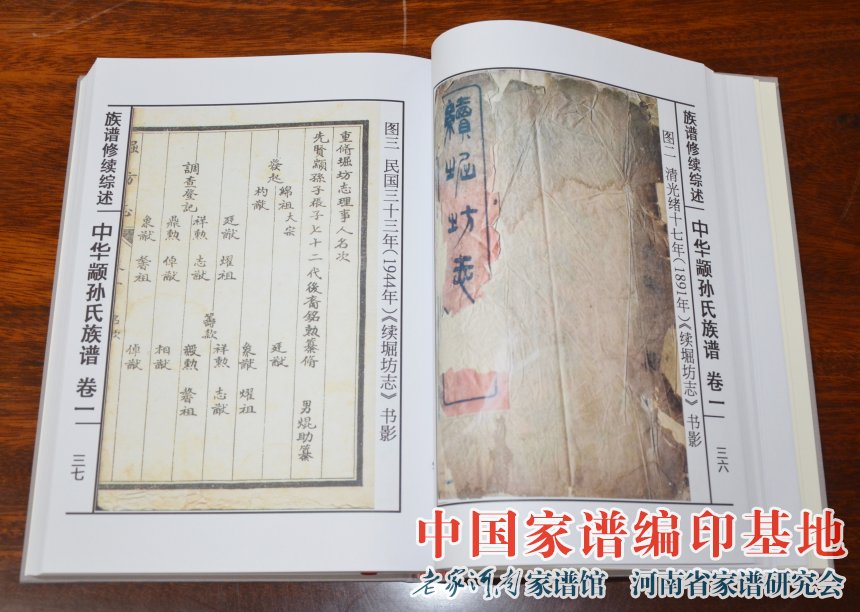 族谱修续综述
中华颛孙氏族谱 卷一
三六
图二 清光绪十七年(1891年)《续堀坊志》书影
續堀坊志
图三 民国三十三年(1944年)《续堀坊志》书影
重脩堀坊志理事人名次
先賢顓孫子張子七十二代後裔銘勲纂脩 男焜助纂
發起
綿祖 大宗
杓猷
廷猷 耀祖
調查登記
祥勲 志猷
鼎勲 倬猷
象猷 馨祖
籌款
廷猷
象猷 耀祖
祥勲 志猷
毅勲 馨祖
相猷
倬猷
堀坊志
族谱修续综述
中华颛孙氏族谱 卷一
三七
中国家谱编印基地
老家河南家谱馆 河南省家谱研究会